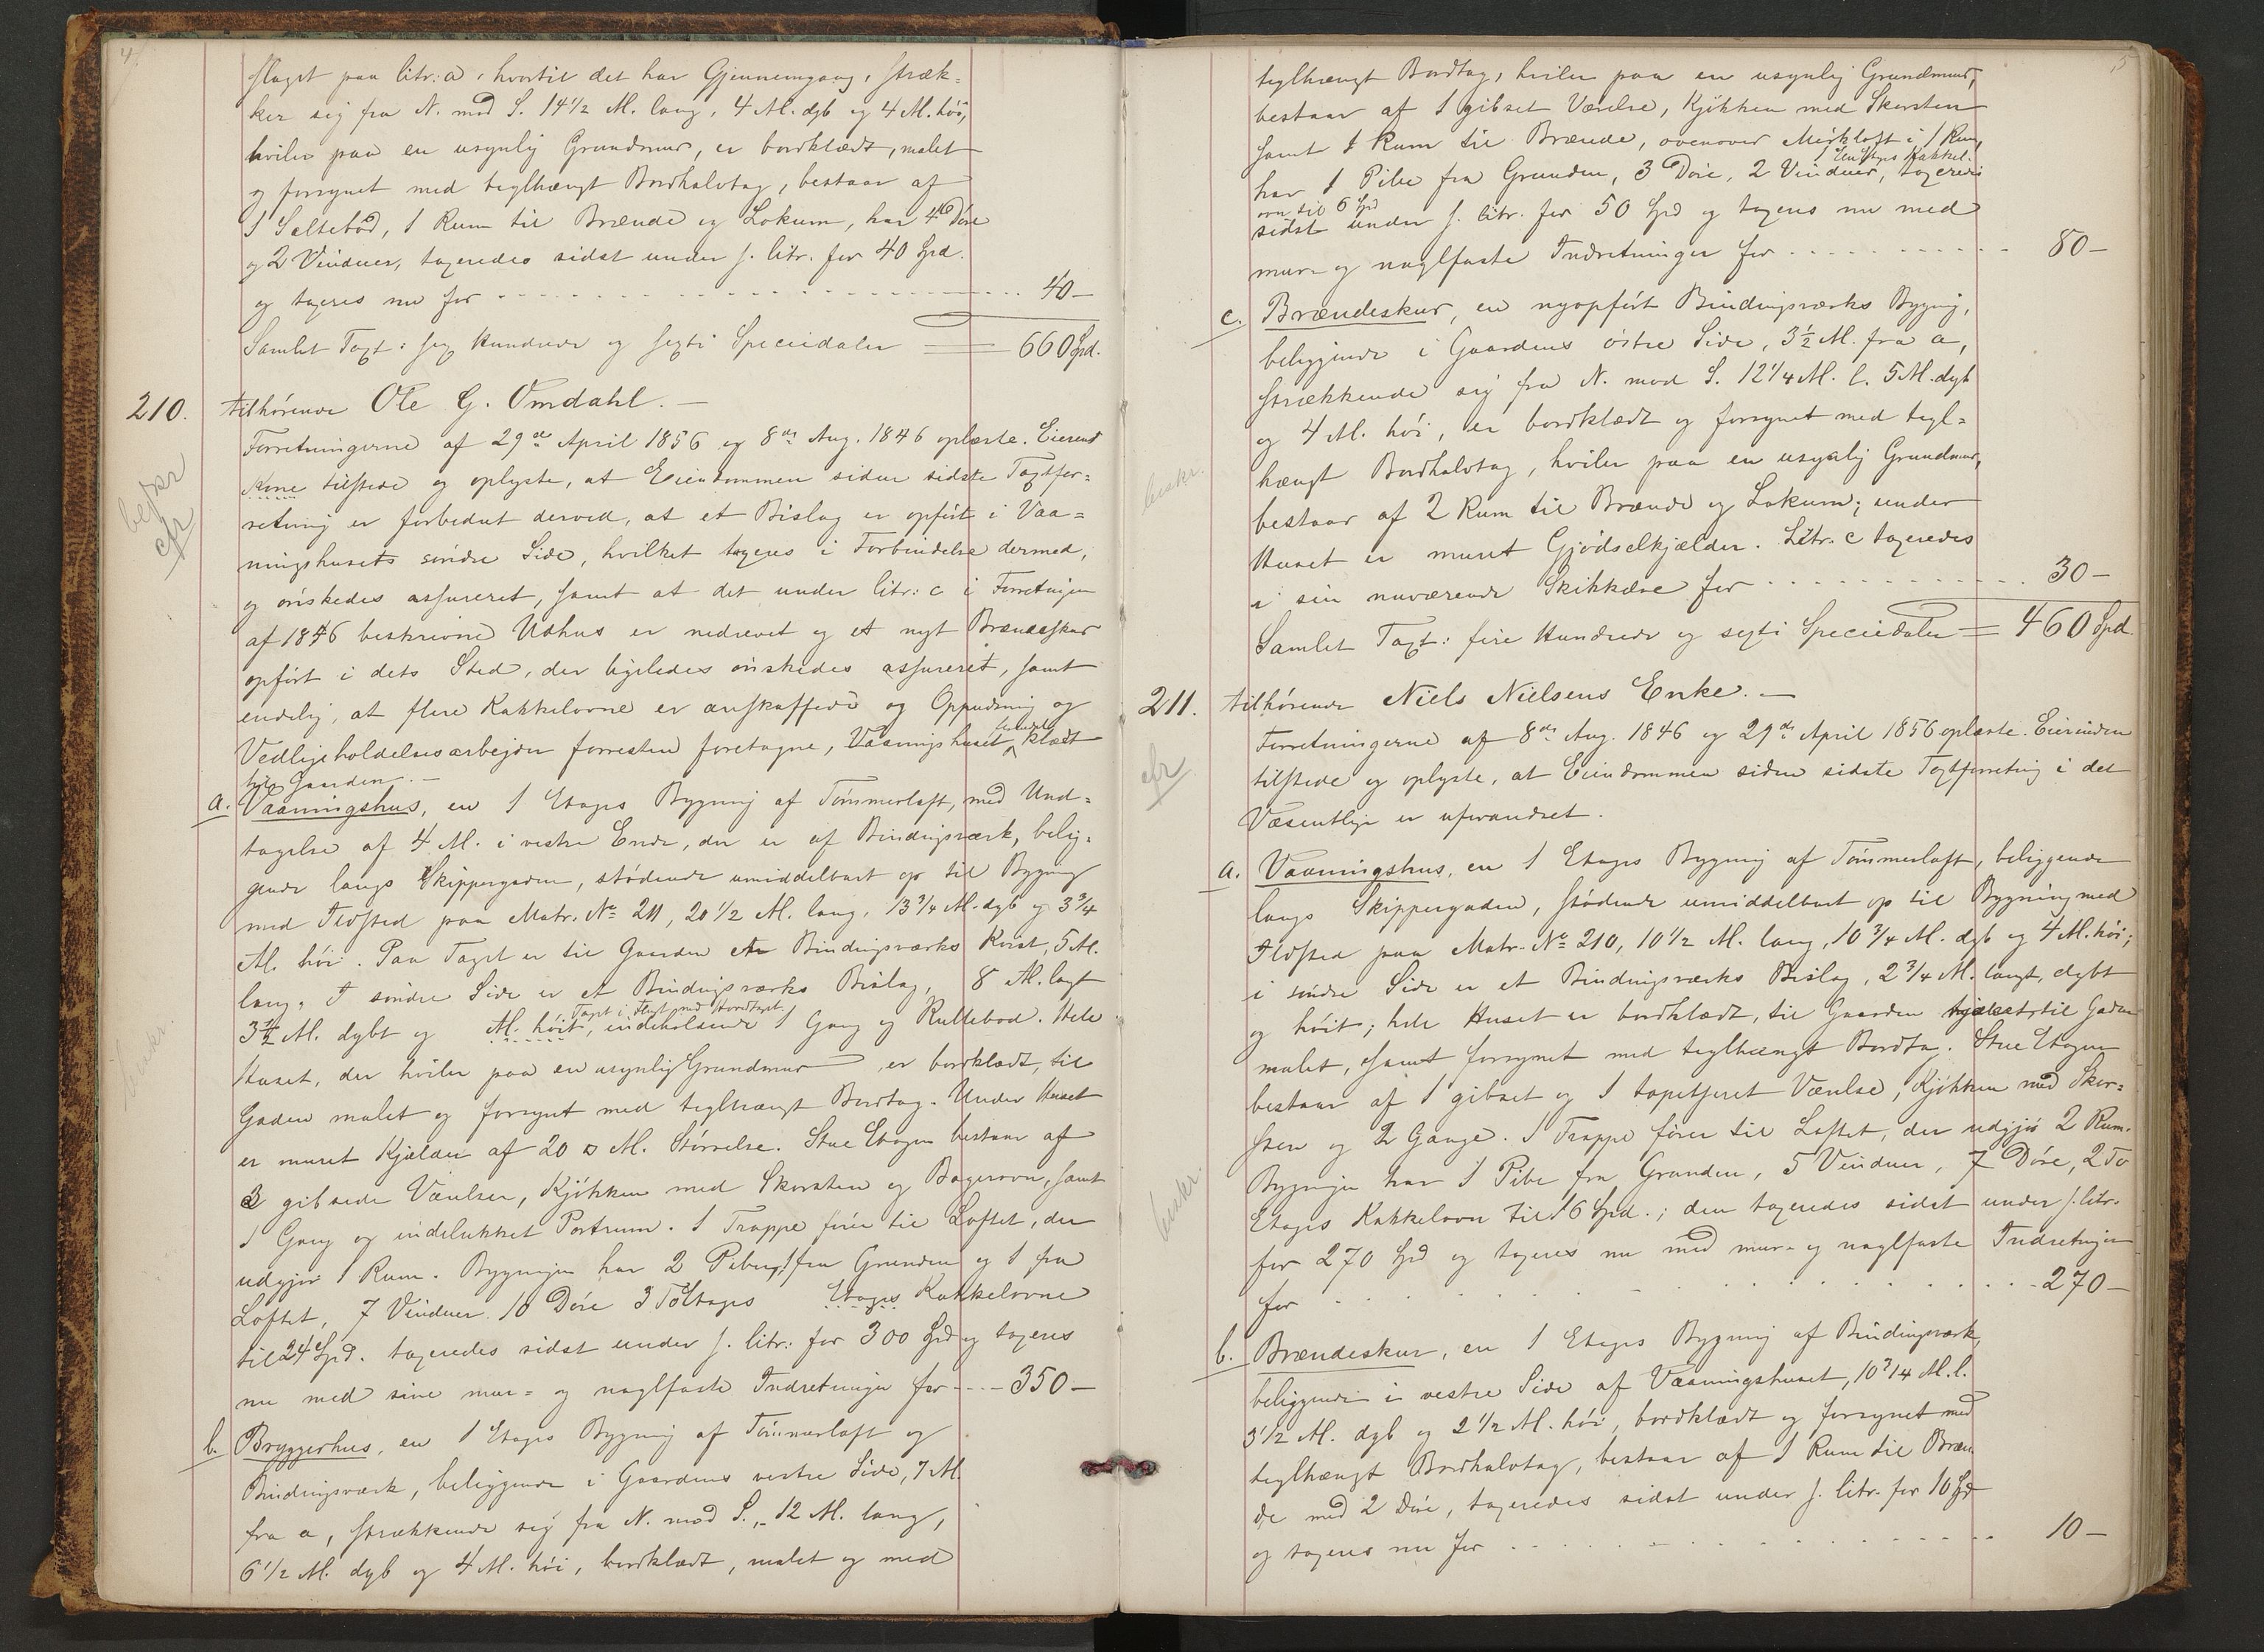 4
slaget paa litr: a, hvortil det har Gjennemgang, stræk-
ker sig fra N. mod S. 14 1/2 Al. lang, 4 Al. dyb og 4 Al. høi,
hviler paa en usynlig Grundmur, er bordklædt, malet
og forsynet med teglhængt Bordhalvtag, bestaar af
1 Saltebod, 1 Rum til Brænde og Lokum, har 4 Døre
og 2 Vinduer, taxeredes sidst under s. litr. for 40 Spd.
og taxeres nu for 40-
Samlet Taxt: sex Hundrede og sexti Speciedaler = 660 Spd.
210. tilhørende Ole G. Omdahl. -
Forretningerne af 29de April 1856 og 8de Aug. 1846 oplæste. Eierens
Kone tilstede og oplyste, at Eiendommen siden sidste Taxtfor-
retning er forbedret derved, at et Bislag er opført i Vaa-
ningshusets søndre Side, hvilket taxeres i Forbindelse dermed,
og ønskedes assureret, samt at det under litr: c i Forretningen
af 1846 beskrevne Udhus er nedrevet og et nyt Brændeskur
opført i dets Sted, der ligeledes ønskedes assureret, samt
endelig, at flere Kakkelovne er anskaffede og Oppudsning og
Vedligeholdelsesarbeider forresten foretagne, Vaaningshuset klædt
til Gaarden. -
a. Vaaningshus, en 1 Etages Bygning af Tømmerlaft, med Und-
tagelse af 4 Al. i vestre Ende, der er af Bindingsværk, belig-
gende langs Skippergaden, stødende umiddelbart op til Bygning
med Ildsted paa Matr. No 211, 20 1/2 Al. lang, 13 3/4 Al. dyb og 3 3/4
Al. høi. Paa Taget er til Gaarden en Bindingsværks Kvist, 5 Al.
lang. I søndre Side er et Bindingsværks Bislag, 8 Al. langt
Taget i Flugt med Hovedtaget
3 1/2 Al. dybt og Al. høit, indeholdende 1 Gang og Rullebod. Hele
Huset, der hviler paa en usynlig Grundmur er bordklædt, til
Gaden malet og forsynet med teglhængt Bordtag. Under Huset
er muret Kjælder af 20 □ Al. Størrelse. Stue Etagen bestaar af
3 gibsede Værelser, Kjøkken med Skorsten og Bagerovn, samt
1 Gang og indelukket Portrum. 1 Trappe fører til Loftet, der
udgjør 1 Rum. Bygningen har 2 Piber, 1 fra Grunden og 1 fra
Loftet, 7 Vinduer 10 Døre 3 ToEtages Etages Kakkelovne
til 24 Spd. taxeredes sidst under s. litr: for 300 Spd og taxeres
nu med sine mur- og naglfaste Indretninger for 350-
b. Bryggerhus, en 1 Etages Bygning af Tømmerlaft og
Bindingsværk, beliggende i Gaardens vestre Side, 7 Al.
fra a, strækkende sig fra N. mod S., 12 Al. lang,
6 1/2 Al. dyb og 4 Al. høi, bordklædt, malet og med
5
teglhængt Bordtag, hviler paa en usynlig Grundmur,
bestaar af 1 gibset Værelse, Kjøkken med Skorsten
samt 1 Rum til Brænde, ovenover Mørkloft i 1 Rum,
har 1 Pibe fra Grunden, 3 Døre, 2 Vinduer, 1 EenEtages Kakkel-
ovn til 6 Spd taxeredes
sidst under s. litr. for 50 Spd og taxeres nu med
mur- og naglfaste Indretninger for 80-
c. Brændeskur, en nyopført Bindingsværks Bygning,
beliggende i Gaardens østre Side, 3 1/2 Al. fra a,
strækkende sig fra N. mod S. 12 1/4 Al. l. 5 Al. dyb
og 4 Al. høi, er bordklædt og forsynet med tegl-
hængt Bordhalvtag, hviler paa en usynlig Grundmur,
bestaar af 2 Rum til Brænde og Lokum; under
Huset er muret Gjødselkjælder. Litr. c taxeredes
i sin nuværende Skikkelse for 30-
Samlet Taxt: fire Hundrede og sexti Speciedaler = 460 Spd.
211. tilhørende Niels Nielsens Enke. -
Forretningerne af 8de Aug. 1846 og 29de April 1856 oplæste. Eierinden
tilstede og oplyste, at Eiendommen siden sidste Taxtforretning i det
Væsentlige er uforandret.
a. Vaaningshus, en 1 Etages Bygning af Tømmerlaft, beliggende
langs Skippergaden, stødende umiddelbart op til Bygning med
Ildsted paa Matr. No 210, 10 1/2 Al. lang, 10 3/4 Al. dyb og 4 Al. høi;
i søndre Side er et Bindingsværks Bislag, 2 3/4 Al. langt, dybt
og høit; hele Huset er bordklædt, til Gaarden til Gaden
malet, samt forsynet med teglhængt Bordta. Stue Etagen
bestaar af 1 gibset og 1 tapetseret Værelse, Kjøkken med Skor-
sten og 2 Gange. 1 Trappe fører til Loftet, der udgjør 2 Rum.
Bygningen har 1 Pibe fra Grunden, 5 Vinduer, 7 Døre, 2 To
Etages Kakkelovn til 16 Spd.; den taxeredes sidst under s. litr.
for 270 Spd og taxeres nu med mur- og naglfaste Indretninger
for 270-
b. Brændeskur, en 1 Etages Bygning af Bindingsværk,
beliggende i vestre Side af Vaaningshuset, 10 3/4 Al. l.
3 1/2 Al. dyb og 2 1/2 Al. høi, bordklædt og forsynet med
teglhængt Bordhalvtag, bestaar af 1 Rum til Bræn-
de med 2 Døre, taxeredes sidst under s. litr. for 10 Spd
og taxeres nu for 10-